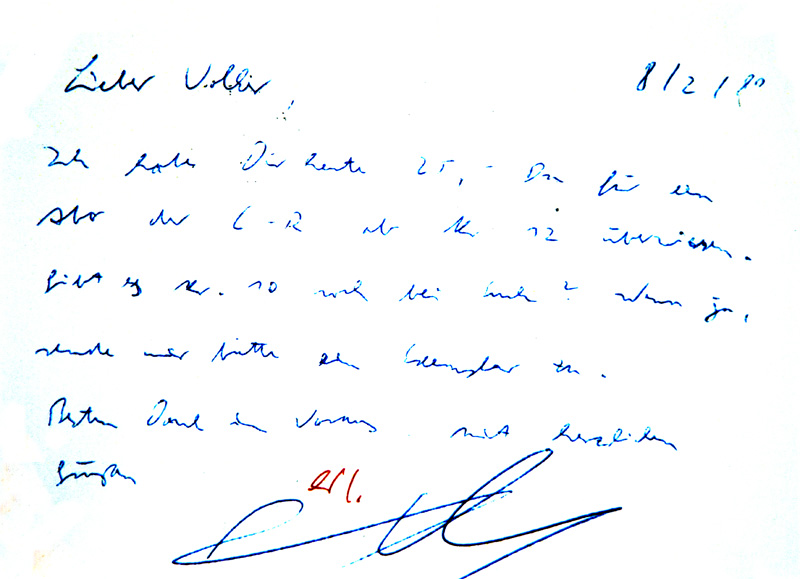 Lieber Volker, 8/2/80
Ich habe Dir heute 25,- DM für ein
Abo der C-R ab Nr. 12 überwiesen.
Gibt es Nr. 10 noch bei Euch? Wenn ja,
sende mir bitte ein Exemplar zu.
Besten Dank im Voraus mit herzlichen
Grüßen
erl.